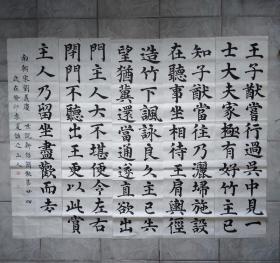 王子猷嘗行過吳中見一
士大夫家極有好竹主已
知子猷當往乃灑埽施設
在聽事坐相待王肩輿徑
造竹下諷詠良久主已失
望猶冀還當通遂直欲出
門主人大不堪便令左右
閉門不聽出王更以此賞
主人乃留坐盡歡而去
南朝宋劉義慶世說新語簡傲第廿四
歲在癸卯春夏